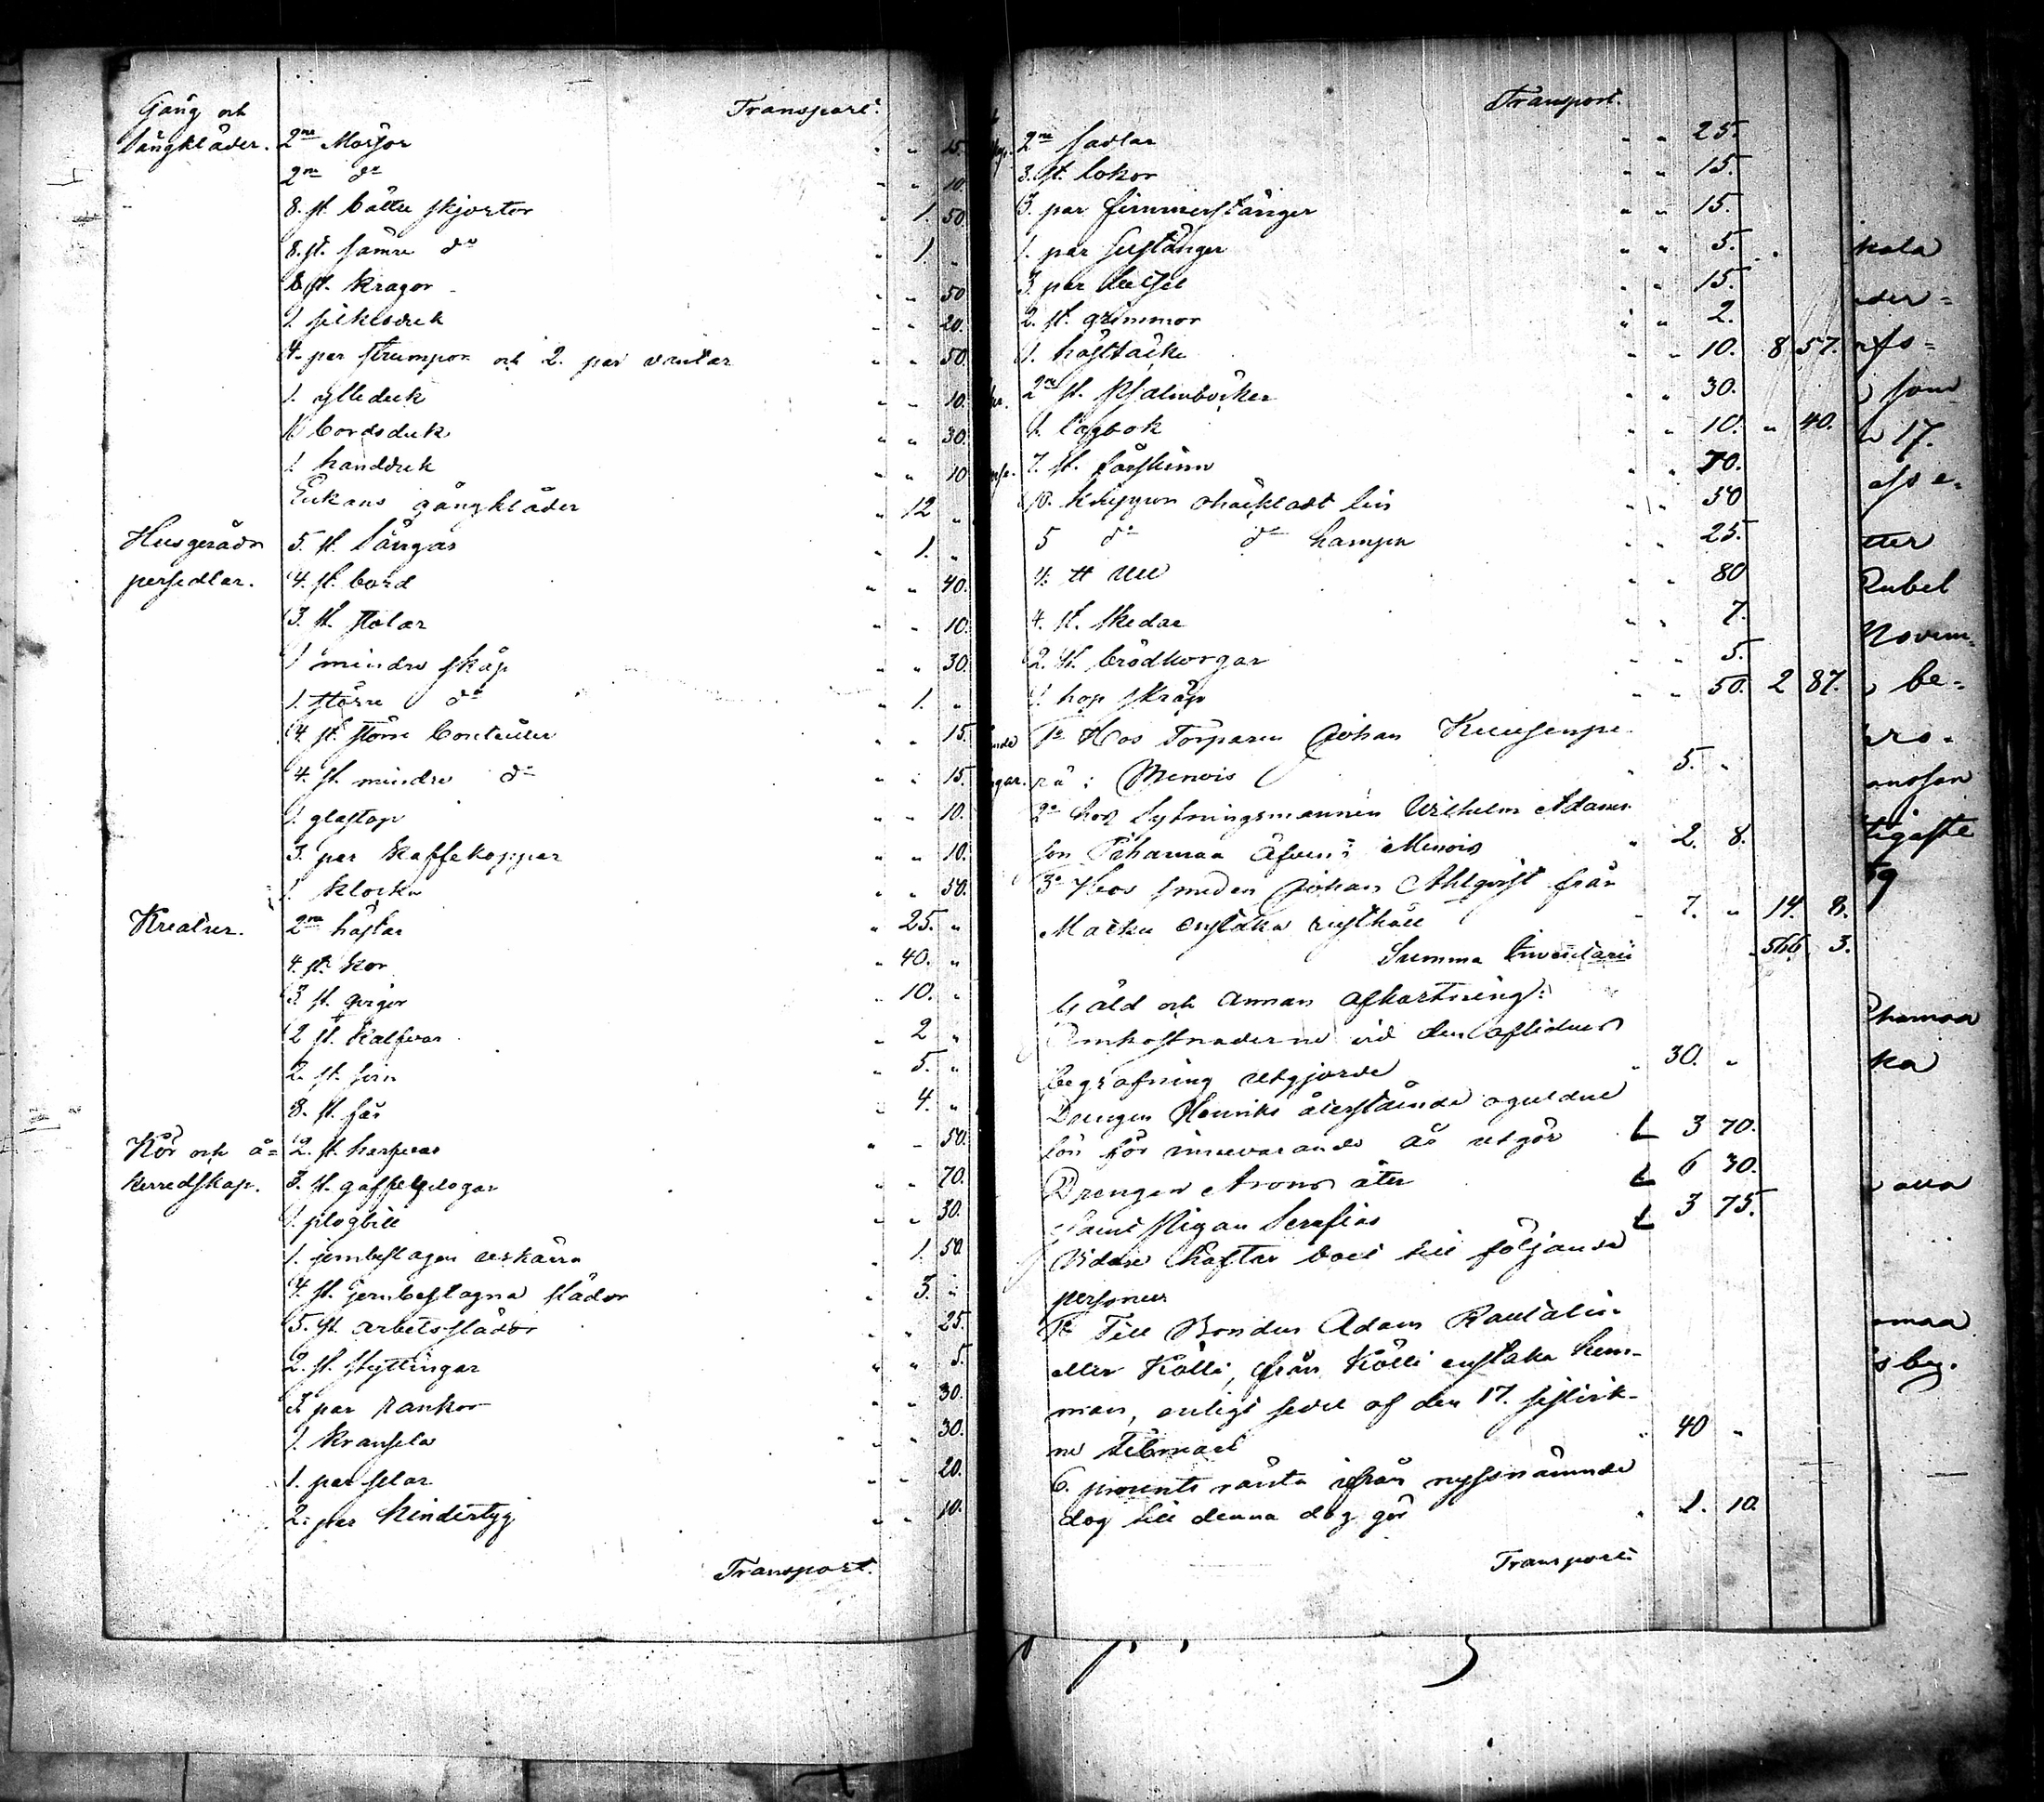 Gång och Transport.
Sängkläder. 2ne Mössor " " 15.
2ne do " " 10.
8. st. bättre skjortor " 1. 50
8. st. sämre do " 1. "
6 st. kragor " " 50
1. silkesduk " " 20.
4. par strumpor och 2. par vantar " " 50.
1. ylleduk " " 10.
1 bordsduk " " 30.
1 handduk " " 10
Enkans gångkläder " 12 "
Husgeråds 5. st. sängar " 1. "
persedlar. 4. st. bord " " 40.
3. st. stolar " " 10.
1 mindre skåp " " 30.
1. större do " 1. "
4. st. större bouteiller " " 15.
4. st. mindre do " " 15.
1. glastop " " 10.
3. par kaffekoppar " " 10.
1. klocka " " 50.
Kreatur. 2ne hästar " 25. "
4. st. kor " 40. "
3 st. qvigor " 10. "
2 st. kalfvar " 2 "
2. st. svin " 5. "
8. st. får " 4. "
Kör och å= 2. st. harfvar " " 50.
kerredskap. 3. st. gaffelplogar " " 70.
1. plogbill " " 30.
1. jernbeslagen kärra " 1. 50
4. st. jernbeslagna slädor " 3. "
5. st. arbetsslädor " " 25.
2. st. styttingar " " 5.
3 par rankor " " 30.
1. kransela " " 30.
1. par selar " " 20.
2. par hindertyg " " 10.
Transport.
Transport.
2ne sadlar " " 25.
3. st. lokor " " 15.
3. par fimmerstänger " " 15.
1. par " " 5.
3. par betsel " " 15.
2. st. grimmor " " 2.
1. hästtäcke " " 10. 8 57.
2ne st. Psalmböcker " " 30.
1. lagbok " " 10. " 40.
7. st. fårskinn " " 70.
10. knippor ohäckladt lin " " 50
5 do do hampa " " 25.
4. ℔ ull " " 80
4. st. skedar " " 7.
2. st. brödkorgar " " 5.
1 hop skräp " " 50. 2 87.
1o Hos Torparen Johan
på Menois " 5. "
2o hos Sytningsmannen Wilhelm Adams
son Tähamaa äfven i Menois " 2. 8.
3o Hos smeden Johan Ahlqvist från
enstaka rusthåll " 7. " 14. 8.
Summa Inventarii 566 3.
Gäld och annan afkortning:
Omkostnaderne vid den aflidnes
begrafning utgjorde " 30. "
Drengen Henriks återstående oguldne
lön för innevarande år utgör 3 70.
Drengen Arons åter 6 30.
samt Pigan Serafias 3 75.
Vidare häftar boet till följande
personer
1o Till Bonden Adam
eller Kölli, från Kölli enstaka hem-
man, enligt sedel af den 17. sistvik-
ne Februari " 40 "
6. procents ränta ifrån nyssnämnde
dag till denna dag gör " 1. 10.
Transport.
kala
som
17.
etter
Rubel
Novem=
be=
ka